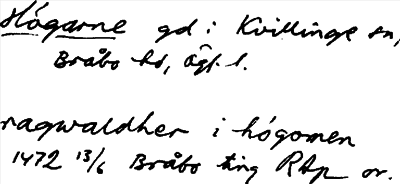 Högarne gd i Kvillinge sn,
Bråbo hd, Ögl.
ragwaldher i högomen
1472 13/6 Bråbo ting RAp or.